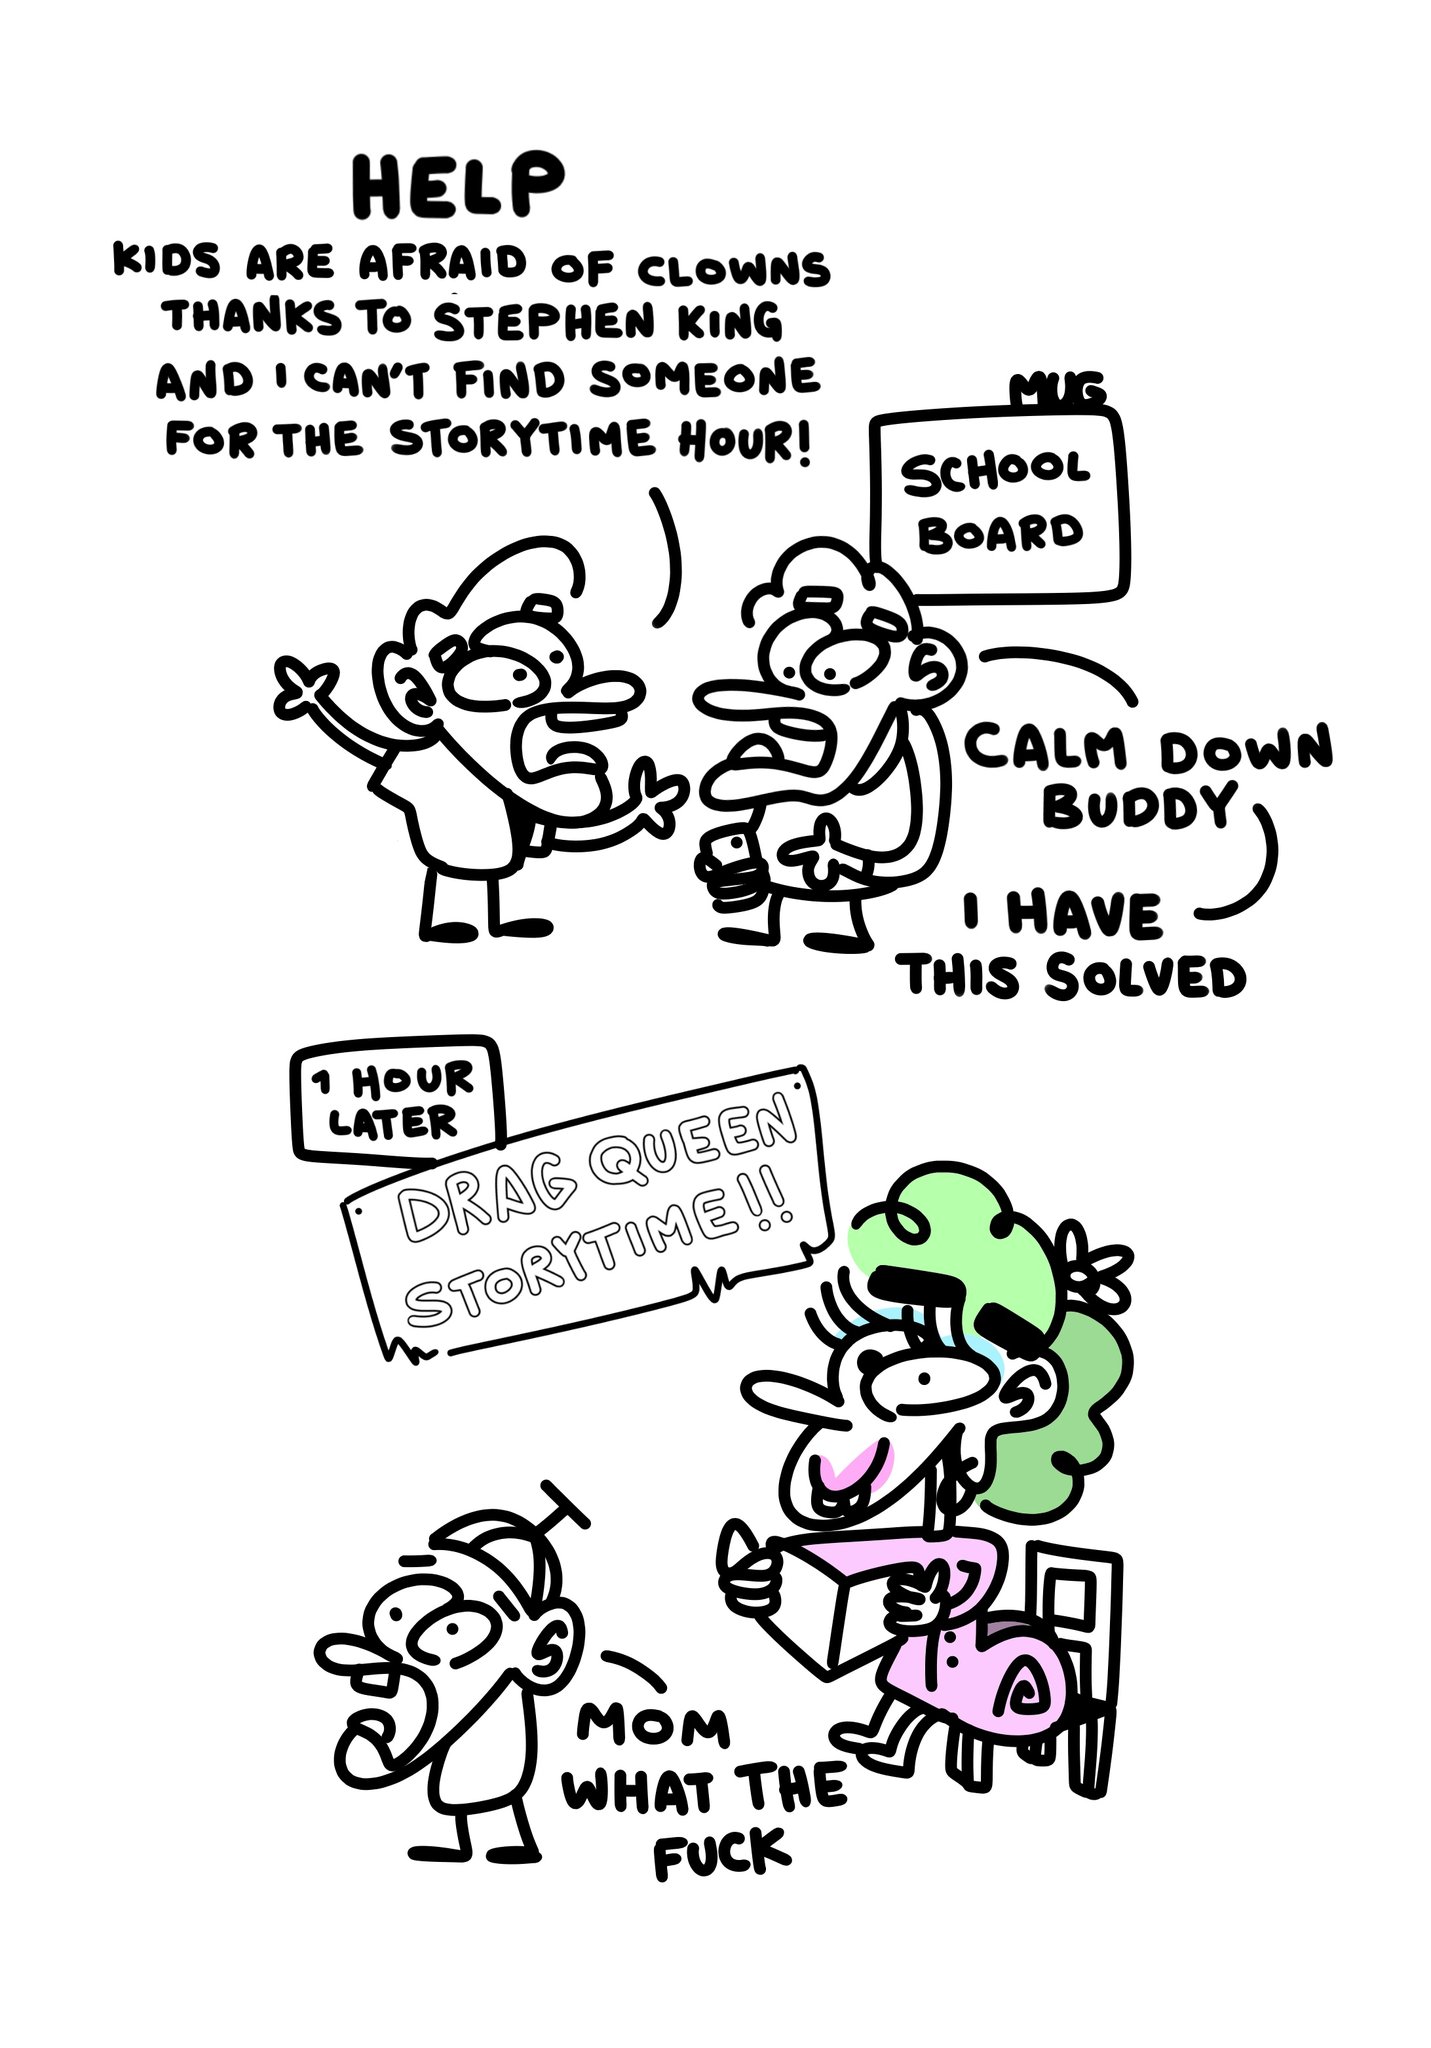 HELP
KIDS ARE AFRAID OF CLOWNS
THANKS TO STEPHEN KING
AND I CAN'T FIND SOMEONE
FOR THE STORYTIME HOUR!
MUG
SCHOOL
BOARD
CALM DOWN
BUDDY
I HAVE
THIS SOLVED
1 HOUR
LATER
DRAG QUEEN
STORYTIME!!
MOM
WHAT THE
FUCK